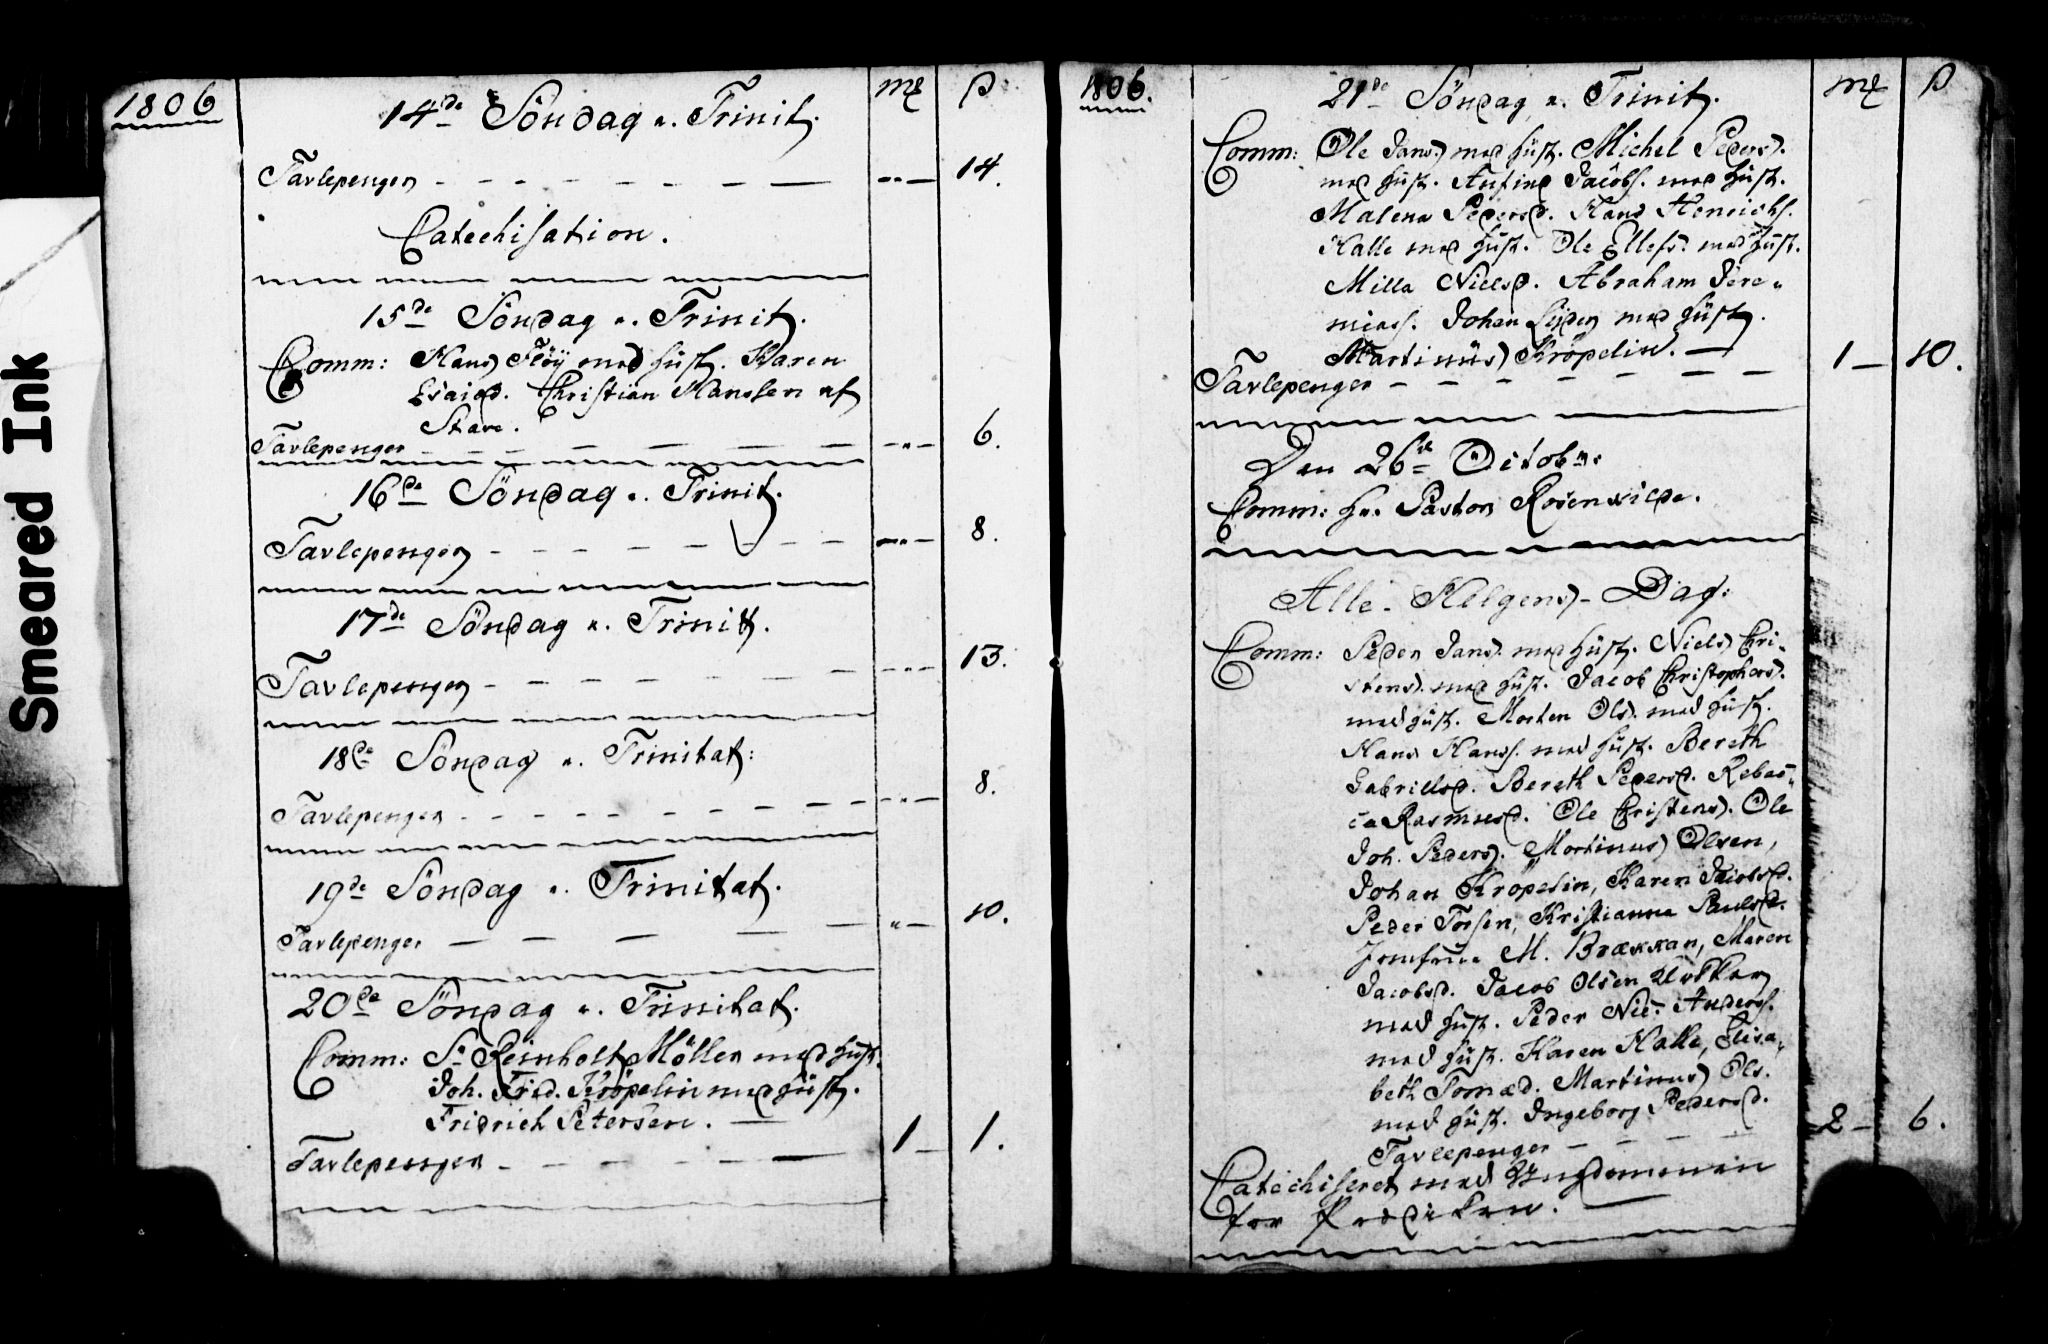 Smeared Ink
1806
m&
ß
14de Söndag n. Trinit.
Tavlepenger - - - 14.
Catechisation.
15de Söndag n. Trinit.
Comm: Hans Flöÿ med Hust. Karen
Esaisd. Christian Hanssen af
Stave.
Tavlepenger - - - 6.
16de Söndag n. Trinit.
Tavlepenger - - - 8.
17de Söndag n. Trinit.
Tavlepenger - - - 13.
18de Söndag n. Trinitat:
Tavlepenger - - - 8.
19de Söndag n. Trinitat.
Tavlepenger - - - 10.
20de Söndag n. Trinitat.
Comm: Sr Reinholt Möller med Hust.
Joh. Frid. Kröpelin med Hust.
Fridrich Petersen.
Tavlepenger - - - 1 - 1.
1806.
m&
ß
21de Söndag n. Trinit.
Comm: Ole Jans. med Hust. Michel Peders.
med Hust. Jacobs. med Hust.
Malena Pedersd. Hans Henrichs.
Halle med Hust. Ole Ellefs. med Hust.
Milla Nielsd. Abraham Jere-
mias. Johan med Hust.
Martinus Kröpelin.
Tavlepenger - - - 1 - 10.
Den 26de Octobr:
Comm: Hr. Pastor Rosenvilde.
Alle-Helgens-Dag:
Comm: Peder Jans. med Hust. Niels Chri-
stens. med Hust. Jacob Christophers.
med Hust. Morten Ols. med Hust.
Hans Hans. med Hust. Bereth
Gabrillsd. Bereth Pedersd. Rebec-
ca Rasmusd. Ole Christens. Ole
Joh. Peders. Mortinus Olsen,
Johan Kröpelin, Karen Jacobsd.
Peder Torsen, Kristianna Paulsd.
Jomfrue M. Maren
Jacobsd. Jacob Olsen Klokker
med Hust. Peder Nic: Anders.
med Hust. Karen Halle, Elisa-
beth Tomæd. Martinus Ols.
med Hust. Ingeborg Pedersd.
Tavlepenger - - - 2 - 6.
Catechiseret med Ungdommen
for Prædiken.